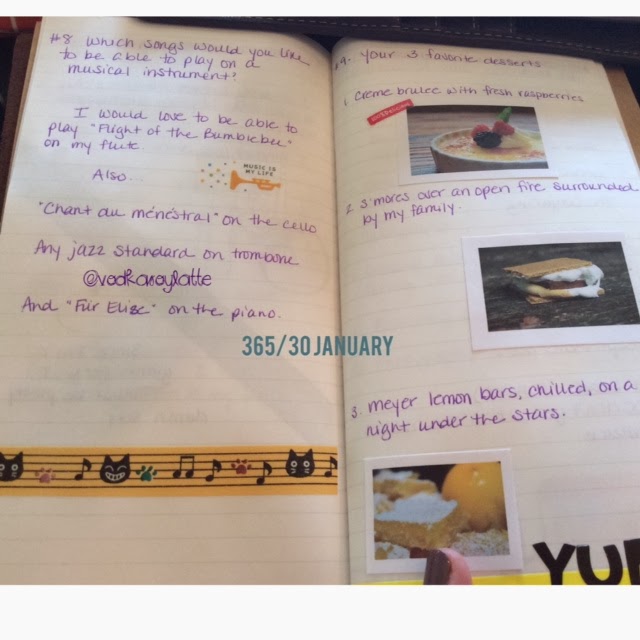 #8 Which songs would you like
to be able to play on a
musical instrument?
I would love to be able to
play "Flight of the Bumblebee"
on my flute.
Also...
MUSIC IS
MY LIFE
"Chant du ménéstral" on the cello
Any jazz standard on trombone
And "Für Elise" on the piano.
365/30 JANUARY
9. your 3 favorite desserts
1 creme brulee with fresh raspberries
2 s'mores over an open fire surrounded
by my family.
3. meyer lemon bars, chilled, on a
night under the stars.
YU